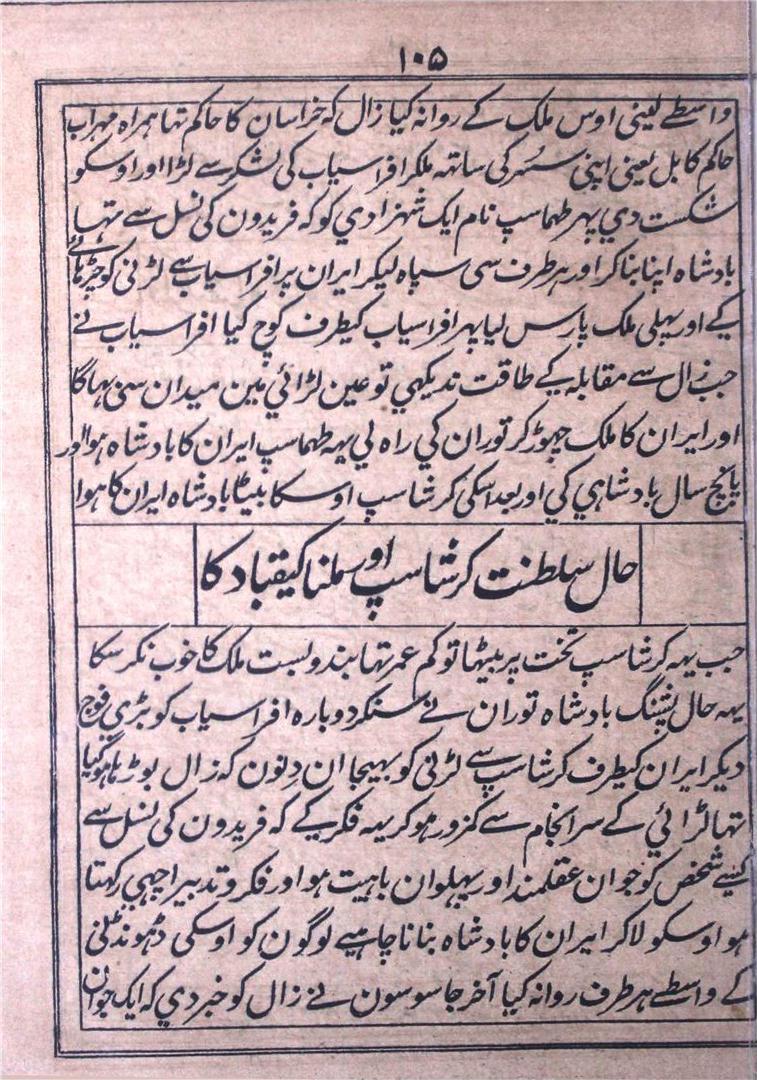 ۱۰۵
واسطے لینی اوس ملک کے روانہ کیا زال کہ خراسان کا حاکم تہا ہمراہ مہراب
حاکم کابل یعنی اپنی سسُہر کی ساتہہ ملکر افراسیاب کی لشکر سے لڑا اور اوسکو
شکست دي پہر طہماسپ نام ایک شہزادي کو کہ فریدون کی نسل سے تہا
بادشاہ اپنا بنا کر اور ہر طرف سی سپاہ لیکر ایران پر افراسیاب سے لڑنی کو چڑہائے
کے اور پہلی ملک پارس لیا پہر افراسیاب کیطرف کوچ کیا افراسیاب نے
جب زال سے مقابلہ کے طاقت ندیکہي تو عین لڑائي مین میدان سی بہاگا
اور ایران کا ملک چہوڑ کر توران کي راہ لي پہہ طہماسپ ایران کا بادشاہ ہوا اور
پانچ سال بادشاہي کي اور بعد اسکی کرشاسپ اوسکا بیٹا بادشاہ ایران کا ہوا
حال سلطنت کرشاسپ اور ملنا کیقباد کا
جب یہہ کرشاسپ تخت پر بیٹہا تو کم عمر تہا بندوبست ملک کا خوب نکر سکا
یہہ حال پشنگ بادشاہ توران نے سنکر دوبارہ افراسیاب کو بڑي فوج
دیکر ایران کیطرف کرشاسپ سے لڑنی کو بہیجا ان دِنون کہ زال بوڑہا ہوگیا
تہا لڑائي کے سرانجام سے کمزور ہو کر یہہ فکر کے کہ فریدون کی نسل سے
کسے شخص کو جوان عقلمند اور پہلوان باہیت ہو اور فکر و تدبیر اچہي رکہتا
ہو اوسکو لا کر ایران کا بادشاہ بنانا چاہیے لوگون کو اوسکی ڈہونڈنی
کے واسطے ہر طرف روانہ کیا آخر جاسوسون نے زال کو خبر دي کہ ایک جوان